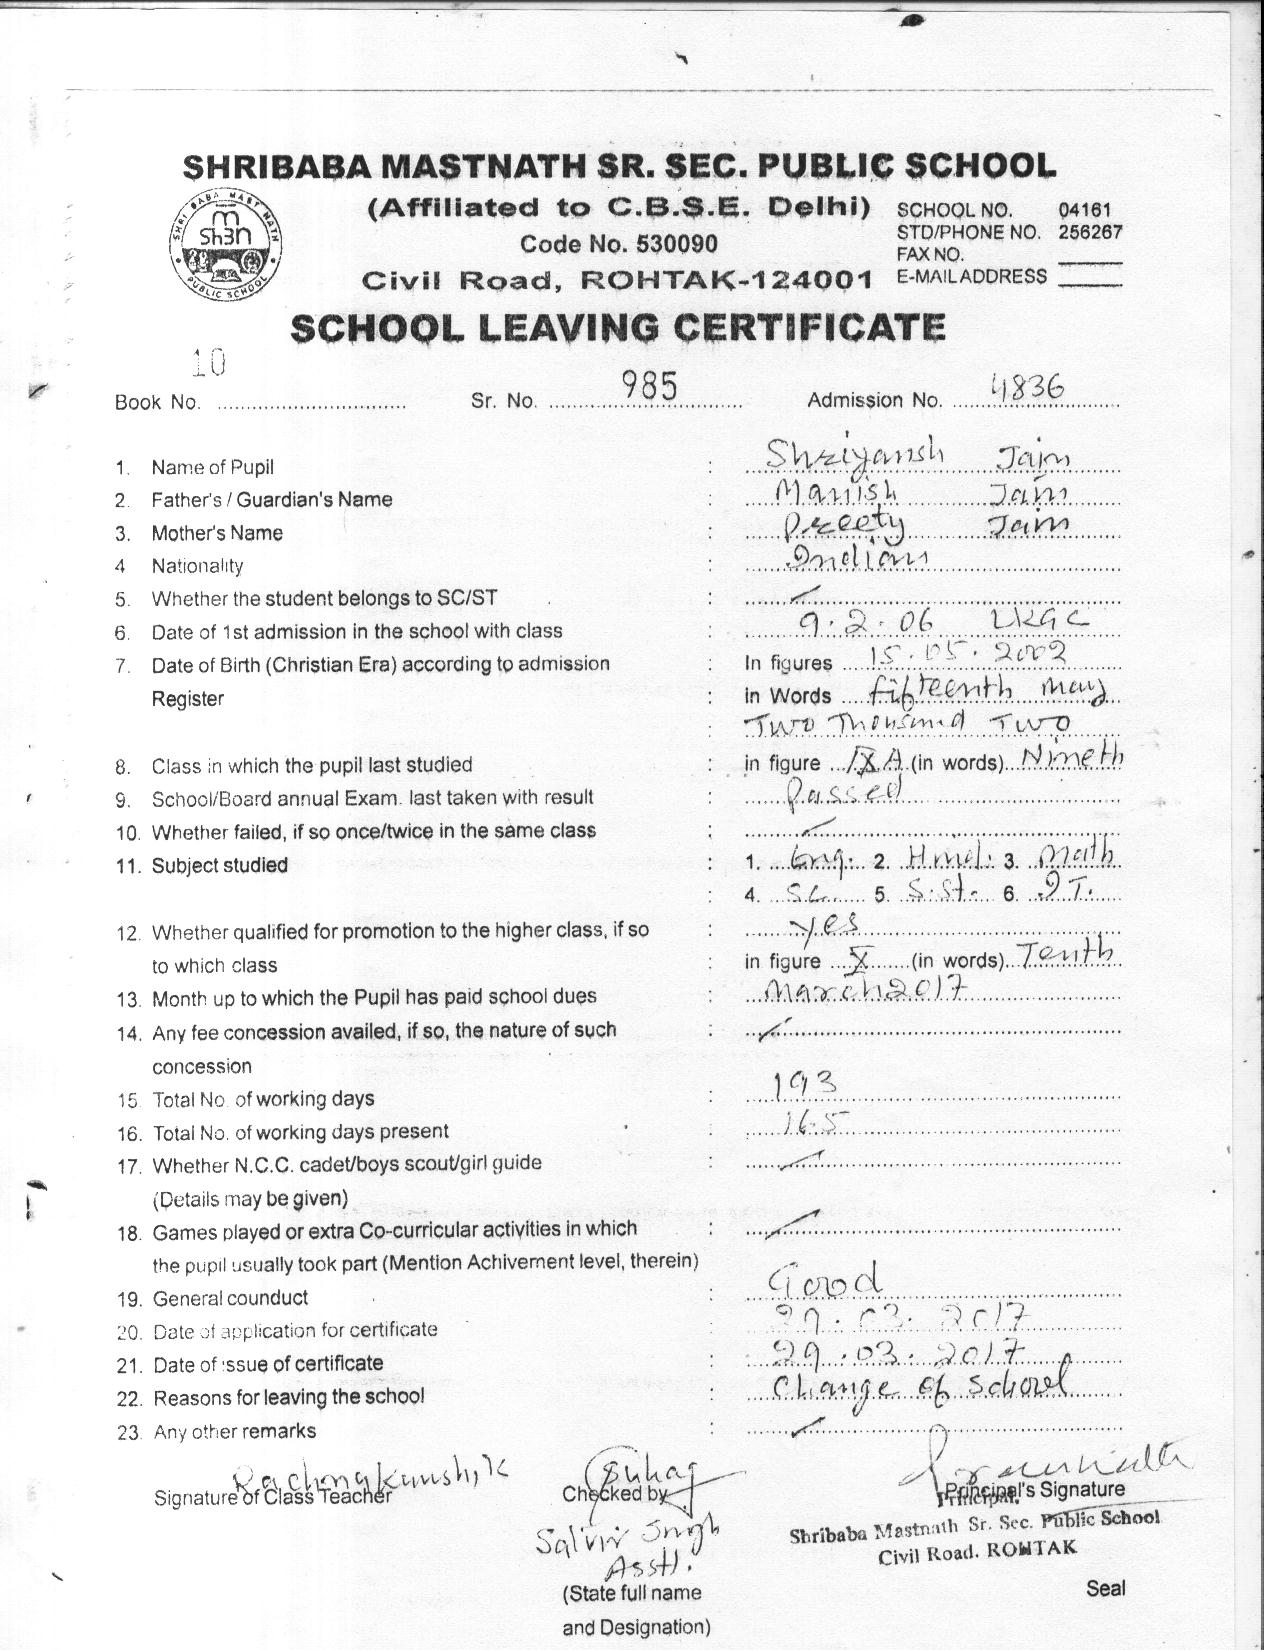 SHRIBABA MASTNATH SR. SEC. PUBLIC SCHOOL
(Affiliated to C.B.S.E. Delhi)
Code No. 530090
Civil Road, ROHTAK-124001
SCHOOL NO. 04161
STD/PHONE NO. 256267
FAX NO.
E-MAIL ADDRESS
SHRI BABA MAST NATH
PUBLIC SCHOOL
SCHOOL LEAVING CERTIFICATE
Book No. 10 Sr. No. 985 Admission No. 4836
1. Name of Pupil : Shriyansh Jain
2. Father's / Guardian's Name : Manish Jain
3. Mother's Name : Preety Jain
4 Nationality : Indian
5. Whether the student belongs to SC/ST :
6. Date of 1st admission in the school with class : 9.2.06 LKG C
7. Date of Birth (Christian Era) according to admission : In figures 15.05.2002
Register : in Words fifteenth may
: Two Thousand Two
8. Class in which the pupil last studied : in figure IX A (in words) Nineth
9. School/Board annual Exam. last taken with result : Passed
10. Whether failed, if so once/twice in the same class :
11. Subject studied : 1. Eng. 2. Hindi. 3. Math
: 4. Sc. 5. S.St. 6. I.T.
12. Whether qualified for promotion to the higher class, if so : yes
to which class : in figure X (in words) Tenth
13. Month up to which the Pupil has paid school dues : March 2017
14. Any fee concession availed, if so, the nature of such :
concession
15. Total No. of working days : 193
16. Total No. of working days present : 165
17. Whether N.C.C. cadet/boys scout/girl guide :
(Details may be given)
18. Games played or extra Co-curricular activities in which :
the pupil usually took part (Mention Achivement level, therein)
19. General counduct : Good
20. Date of application for certificate : 29.03.2017
21. Date of issue of certificate : 29.03.2017
22. Reasons for leaving the school : Change of School
23. Any other remarks :
Signature of Class Teacher Checked by Principal's Signature
Principal,
Shribaba Mastnath Sr. Sec. Public School
Civil Road. ROHTAK
Singh
Asstt.
(State full name Seal
and Designation)